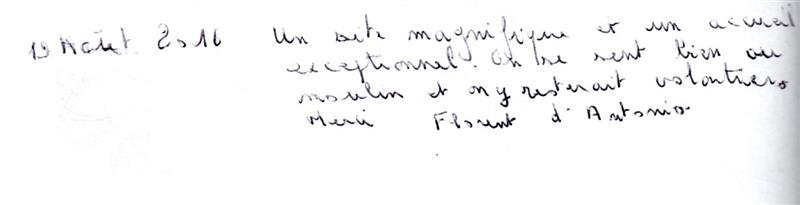 19 Août 2016 Un site magnifique et un accueil
exceptionnel. On se sent bien au
moulin et on y resterait volontiers
Merci Florent d'Antonio